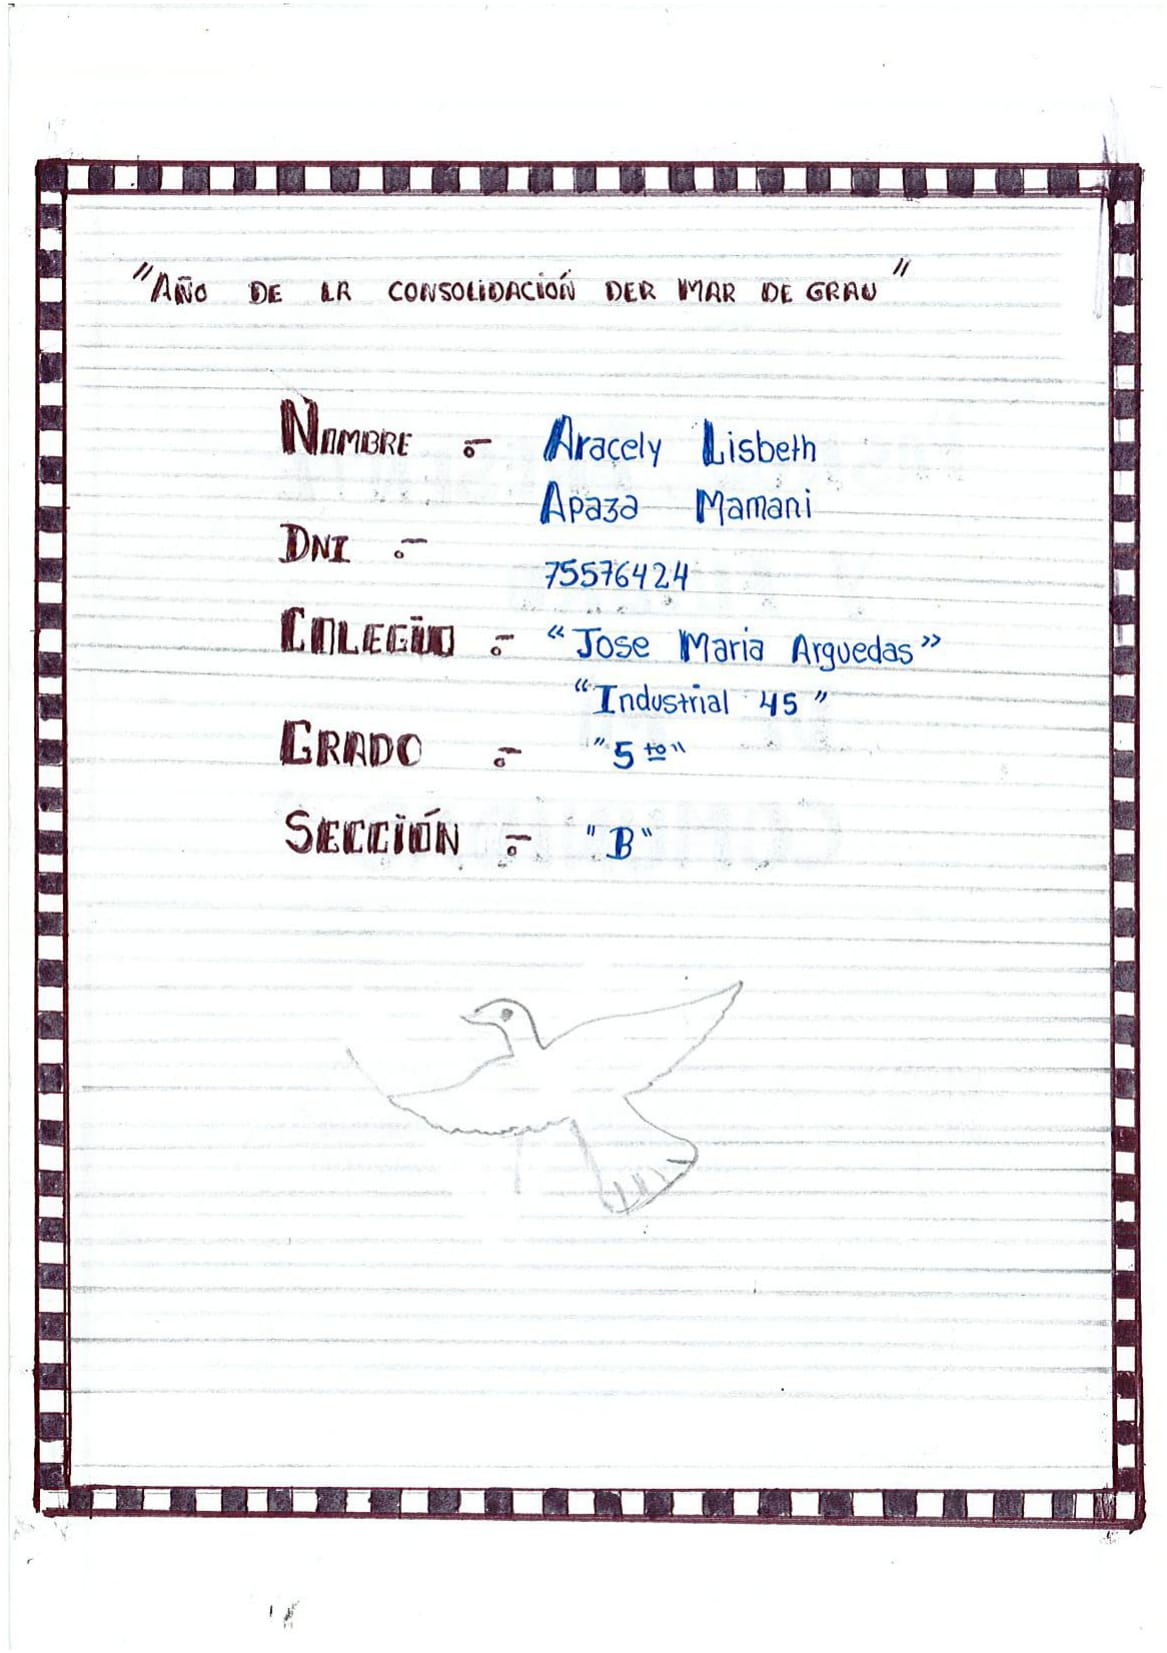 "AÑO DE LA CONSOLIDACIÓN DER MAR DE GRAU"
NOMBRE .- Aracely Lisbeth
Apaza Mamani
DNI .-
75576424
COLEGIO .- "Jose Maria Arguedas"
"Industrial 45"
GRADO .- "5to"
SECCIÓN .- "B"